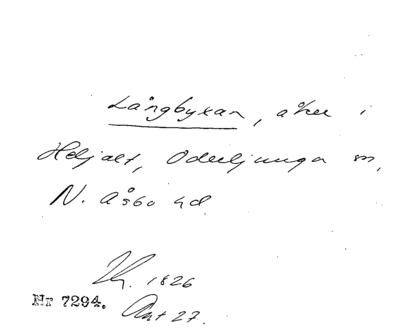 Långbyxan, åker i
Hdjalt, Oderljunga sn,
N. Åsbo hd.
1826
Nr 7294. Ant 27.